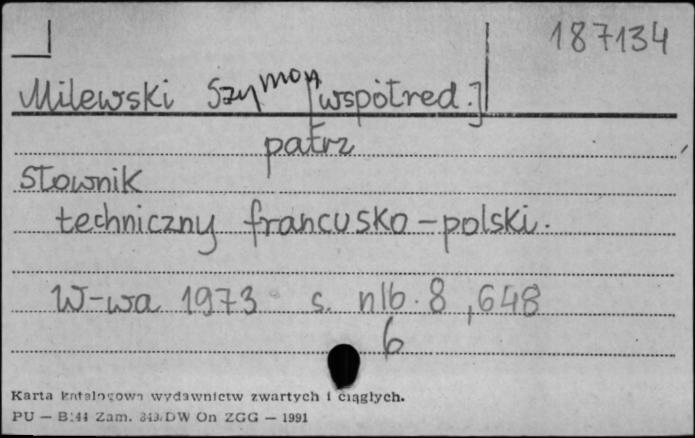 187134
Milewski Szymon [współred.]
patrz
Słownik
techniczny francusko-polski.
W-wa 1973 s. nlb. 8, 648
6
Karta katalogowa wydawnictw zwartych i ciągłych.
PU — Zam. DW On ZGG — 1991